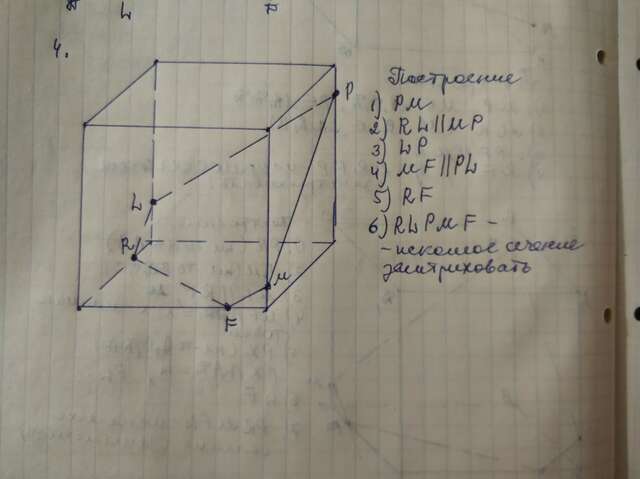 L
F
4.
P
L
R
M
F
Построение
1) PM
2) RL||MP
3) LP
4) MF||PL
5) RF
6) RLPMF -
- искомое сечение
заштриховать